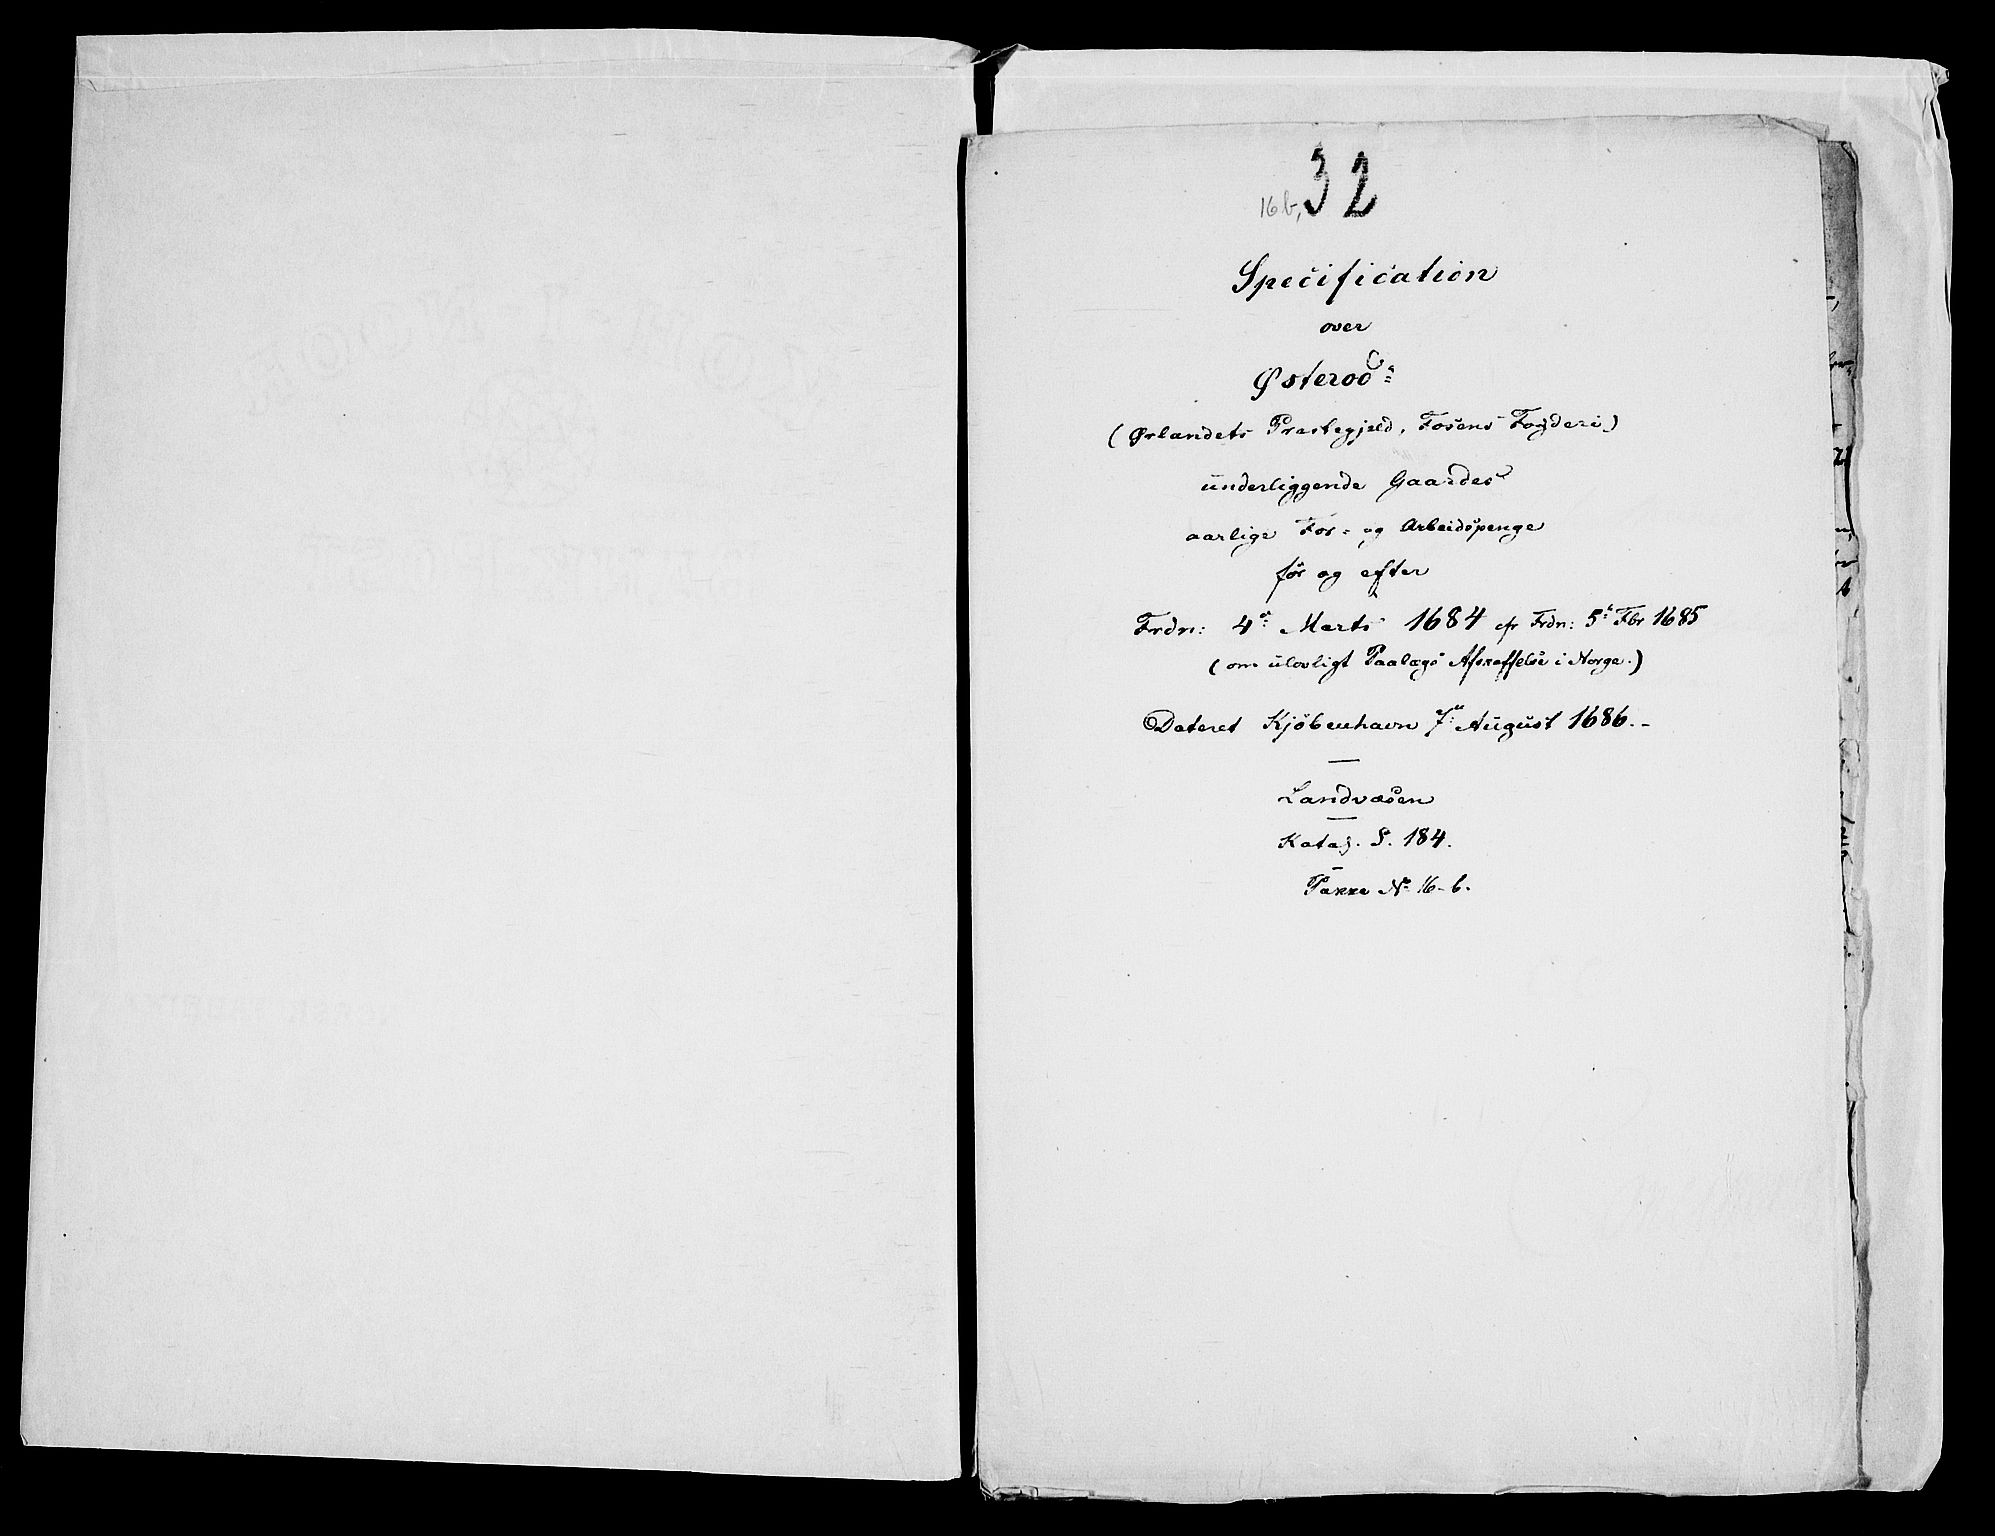 16 b, 32
Specification
over
Østeroð:
(Ørlandets Præstegjæld, Fosens Fogderi)
underliggende Gaardes
aarlige For- og Arbeidspenge
før og efter
Frdn: 4: Marts 1684 cfr Frdn: 5: Fbr 1685
(om ulovligt Paalægs Afskaffelse i Norge.)
Dateret Kjøbenhavn 7: August 1686.-
Landvæsen
Katal. S. 184.
Pakke No 16-b.